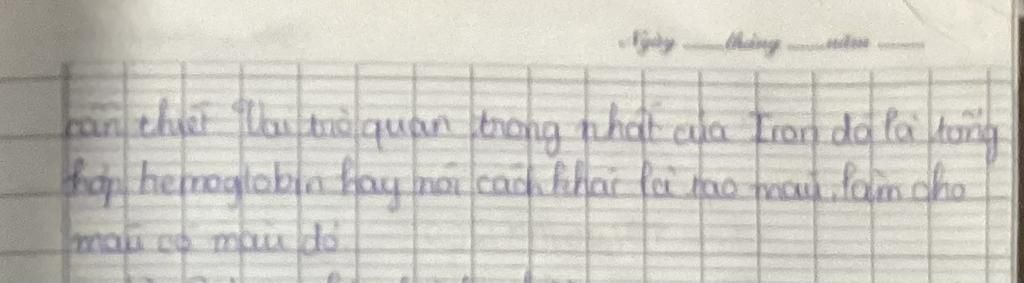 Ngày tháng năm
cần thiết. Vai trò quan trọng nhất của Iron đó là tổng
hợp hemoglobin hay nói cách khác là tạo máu, làm cho
máu có màu đỏ